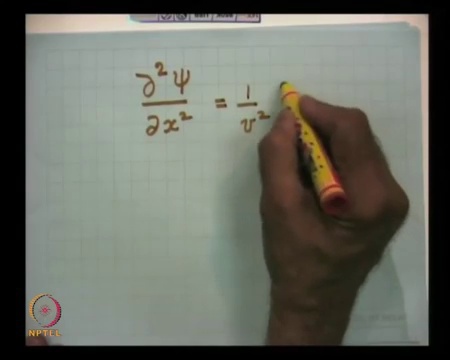 ∂²ψ/∂x² = 1/v²
NPTEL